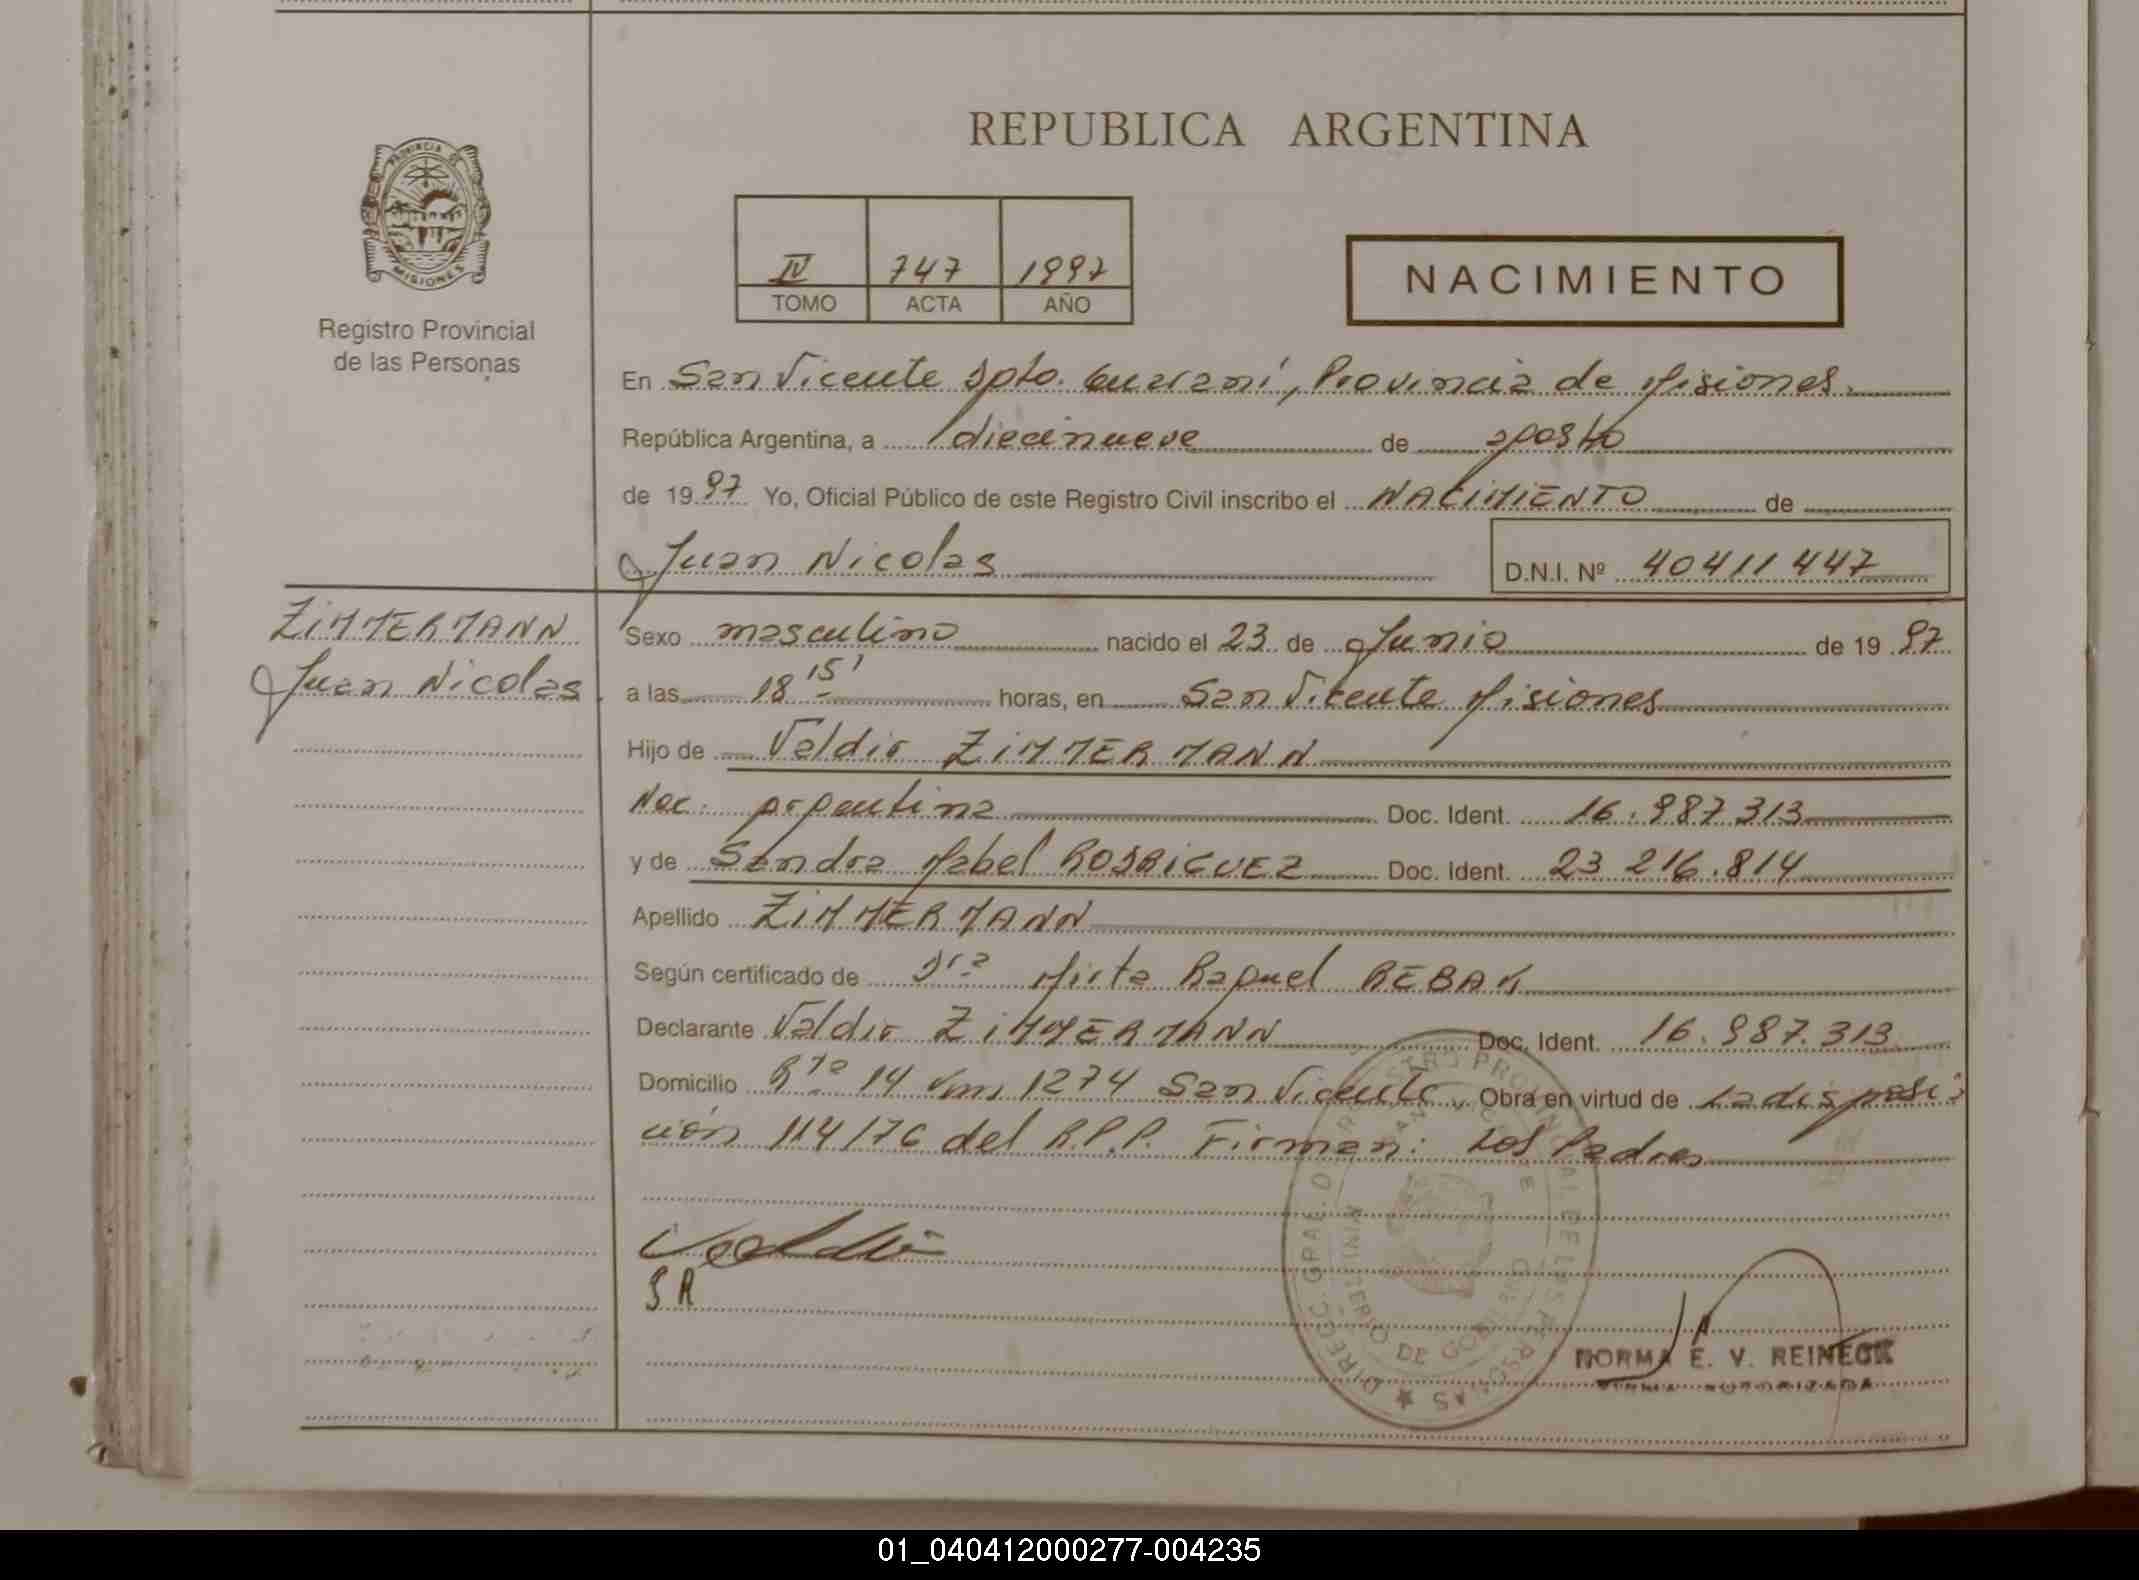 REPUBLICA ARGENTINA
PROVINCIA DE
MISIONES
Registro Provincial
de las Personas
IV 747 1997
TOMO ACTA AÑO
NACIMIENTO
En San Vicente Dpto. Guaraní, Provincia de Misiones.
República Argentina, a diecinueve de agosto
de 1997 Yo, Oficial Público de este Registro Civil inscribo el NACIMIENTO de
Juan Nicolas D.N.I. Nº 40411447
ZIMMERMANN
Juan Nicolas
Sexo masculino nacido el 23 de Junio de 1997
a las 18 15' horas, en San Vicente Misiones
Hijo de Valdir ZIMMERMANN
Nac. argentina Doc. Ident. 16.987.313
y de Sandra Mabel RODRIGUEZ Doc. Ident. 23 216.814
Apellido ZIMMERMANN
Según certificado de Dra Mirta Raquel REBAK
Declarante Valdir ZIMMERMANN Doc. Ident. 16.987.313
Domicilio Rta 14 Km 1274 San Vicente Obra en virtud de La disposi
ción 114/76 del R.P.P. Firman: Los Padres
Valdir
S R
NORMA E. V. REINECK
FIRMA AUTORIZADA
01_040412000277-004235